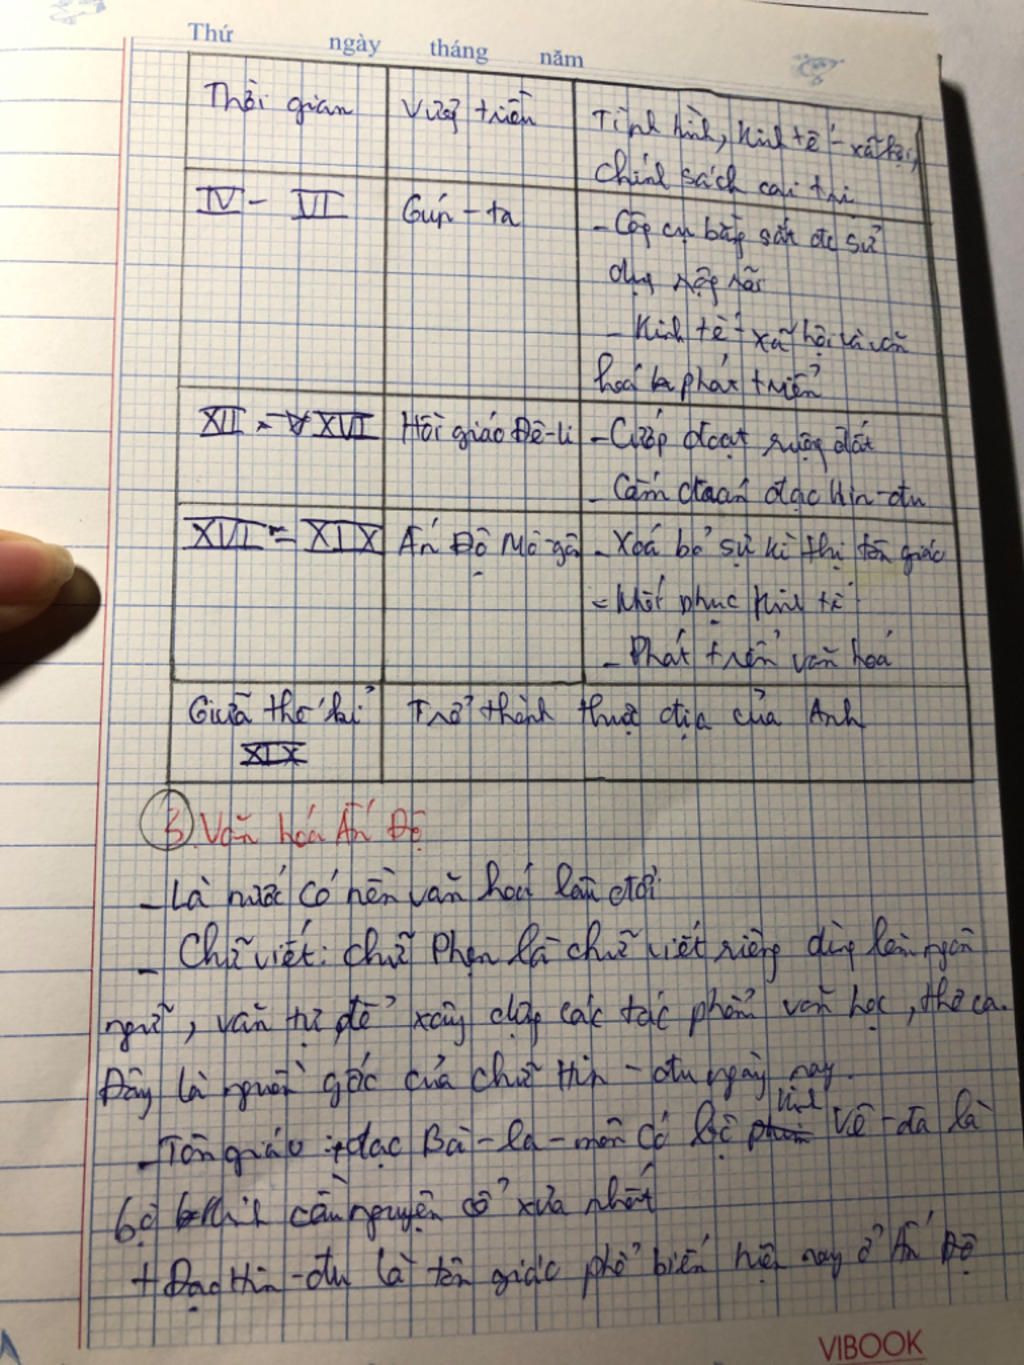 Thứ ngày tháng năm
Thời gian
Vương triều
Tình hình, kinh tế - xã hội,
chính sách cai trị
IV - VI
Gúp - ta
- Công cụ bằng sắt đc sử
dụng rộng rãi
- Kinh tế - xã hội và văn
hoá phát triển
XII - XVI
Hồi giáo Đê-li
- Cướp đoạt ruộng đất
- Cấm đoán đạo Hin-đu
XVI - XIX
Ấn Độ Mô-gôn
- Xoá bỏ sự kì thị tôn giáo
- Khôi phục kinh tế
- Phát triển văn hoá
Giữa thế kỉ
XIX
Trở thành thuộc địa của Anh
3. Văn hoá Ấn Độ
- Là nước có nền văn hoá lâu đời
- Chữ viết: chữ Phạn là chữ viết riêng dùng làm ngôn
ngữ, văn tự để xây dựng các tác phẩm văn học, thơ ca.
Đây là nguồn gốc của chữ Hin - đu ngày nay.
- Tôn giáo: + đạo Bà - la - môn có bộ kinh Vê - đa là
bộ kinh cầu nguyện cổ xưa nhất
+ Đạo Hin - đu là tôn giáo phổ biến hiện nay ở Ấn Độ
VIBOOK